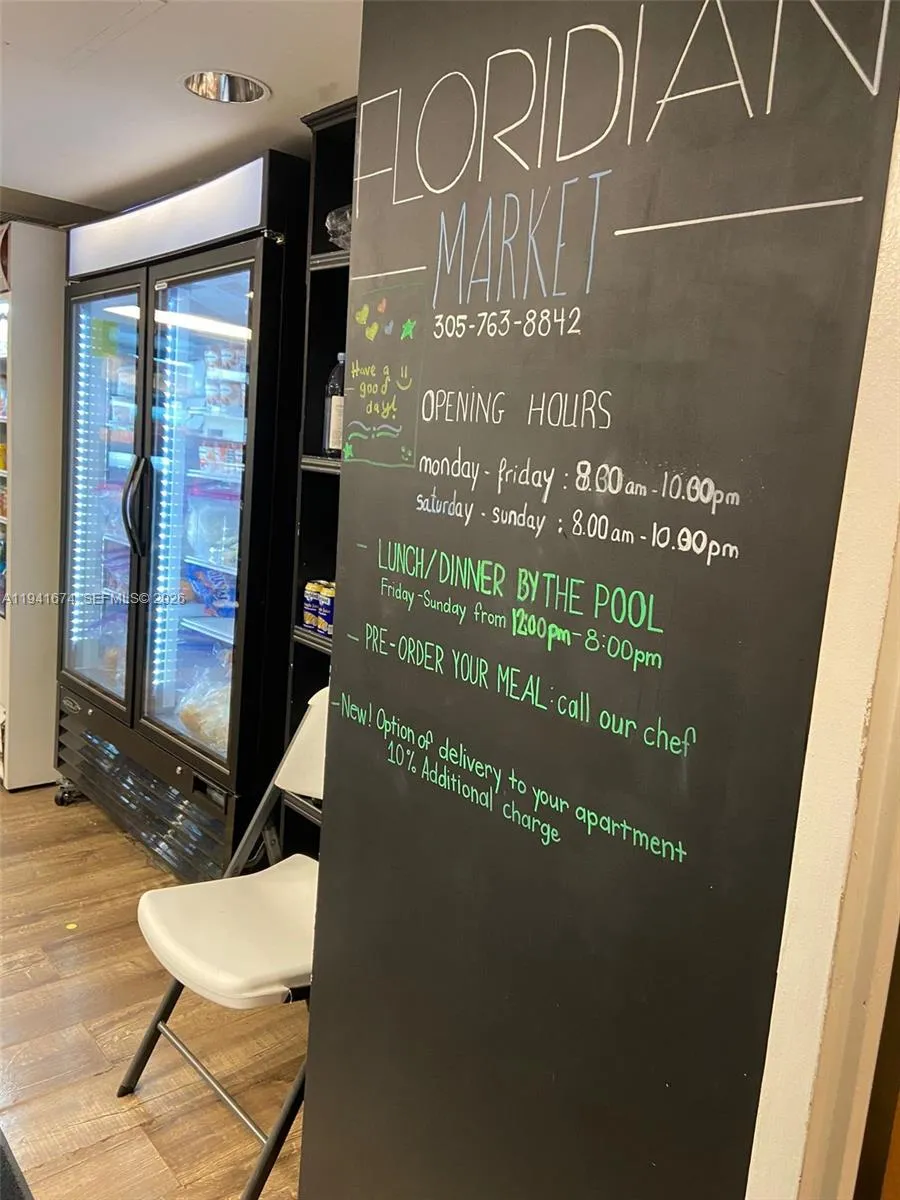 FLORIDIAN
MARKET
305-763-8842
Have a
good
day!
OPENING HOURS
monday - friday : 8.00am - 10.00pm
saturday - sunday : 8.00am - 10.00pm
- LUNCH/DINNER BY THE POOL
Friday-Sunday from 12:00pm-8:00pm
- PRE-ORDER YOUR MEAL: call our chef
- New! Option of delivery to your apartment
10% Additional charge
A11941674 SEFMLS© 2026